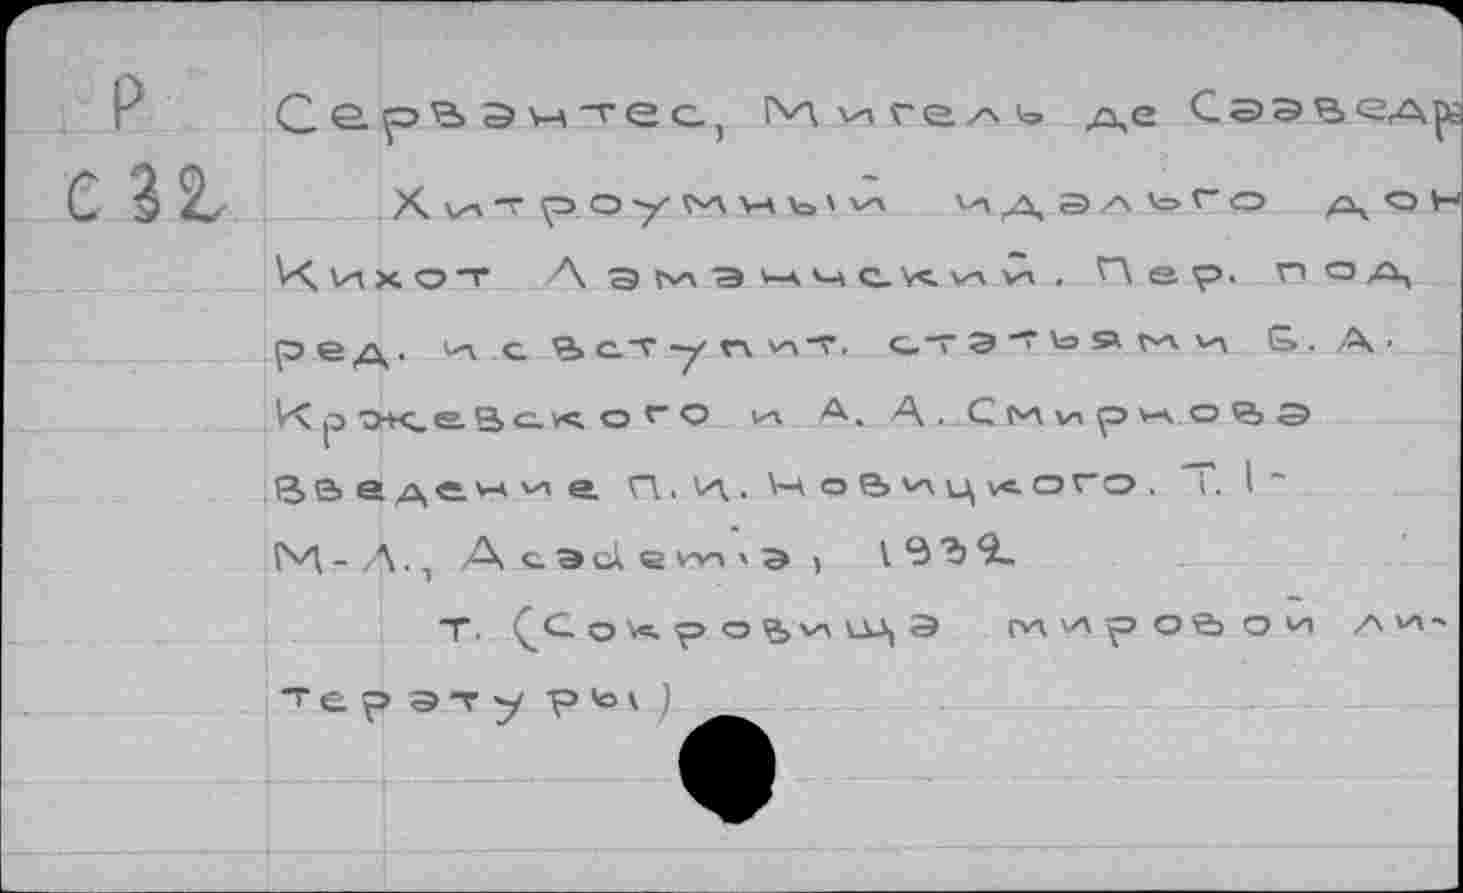 Р
С 32
Сервантес, Мигель де Сааведр
Хитроумный идальго дон
Кихот Ламанчский. Пер. под
ред. и с вступит. статьями Б. А.
Кржевского и А. А. Смирнова
Введение П. И. Новицкого. Т. 1-
М-Л., Academia, 1932
т. (Сокровища мировой ли-
тературы)